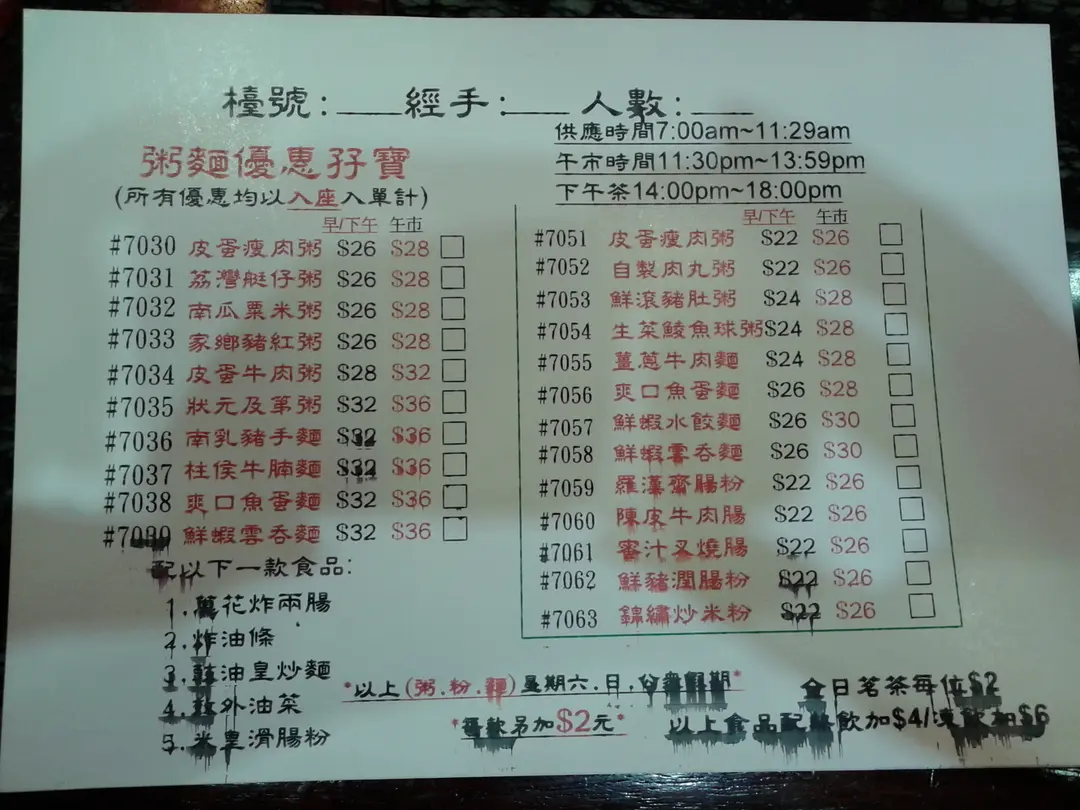 檯號:____經手:____人數:____
供應時間7:00am~11:29am
午市時間11:30pm~13:59pm
下午茶14:00pm~18:00pm
粥麵優惠孖寶
(所有優惠均以入座入單計)
早/下午 午市
#7030 皮蛋瘦肉粥 $26 $28
#7031 荔灣艇仔粥 $26 $28
#7032 南瓜粟米粥 $26 $28
#7033 家鄉豬紅粥 $26 $28
#7034 皮蛋牛肉粥 $28 $32
#7035 狀元及第粥 $32 $36
#7036 南乳豬手麵 $32 $36
#7037 柱侯牛腩麵 $32 $36
#7038 爽口魚蛋麵 $32 $36
#7039 鮮蝦雲吞麵 $32 $36
配以下一款食品:
1.萬花炸兩腸
2.炸油條
3.豉油皇炒麵
4.郊外油菜
5.米皇滑腸粉
早/下午 午市
#7051 皮蛋瘦肉粥 $22 $26
#7052 自製肉丸粥 $22 $26
#7053 鮮滾豬肚粥 $24 $28
#7054 生菜鯪魚球粥$24 $28
#7055 薑蔥牛肉麵 $24 $28
#7056 爽口魚蛋麵 $26 $28
#7057 鮮蝦水餃麵 $26 $30
#7058 鮮蝦雲吞麵 $26 $30
#7059 羅漢齋腸粉 $22 $26
#7060 陳皮牛肉腸 $22 $26
#7061 蜜汁叉燒腸 $22 $26
#7062 鮮豬潤腸粉 $22 $26
#7063 錦繡炒米粉 $22 $26
*以上(粥.粉.麵)星期六.日.公眾假期*
*需另加$2元*
全日茗茶每位$2
以上食品配熱飲加$4/凍飲加$6